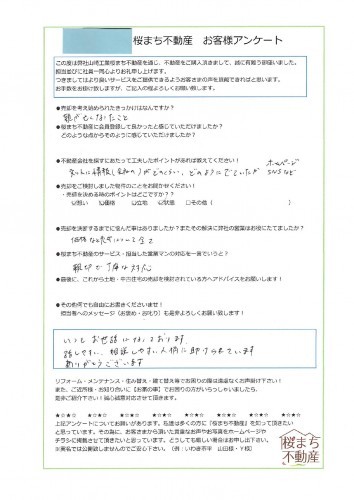 桜まち不動産 お客様アンケート
この度は弊社山﨑工業桜まち不動産を通じ、不動産をご購入頂きまして、誠に有難う御座いました。
担当並びに社員一同心よりお礼申し上げます。
つきましてはより良いサービスをご提供できるようお客さまの声を掲載できればと思います。
お手数をお掛け致しますが、ご記入の程よろしくお願い致します。
●売却を考え始められたきっかけはなんですか?
親が亡くなったこと
●桜まち不動産に会員登録して良かったと感じていただけましたか?
どのような点からそのように感じていただけましたか?
●不動産会社を探すにあたって工夫したポイントがあれば教えてください!
ホームページ
SNSなど
●売却をご検討しました物件のことをお聞かせください!
・売却を決める時のポイントはどこですか?
☑想い ☑価格 □立地 □状態 □その他(
●売却を決断するまでに悩んだ事はありましたか?またその解決に弊社の営業はお役にたてましたか?
●桜まち不動産のサービス・担当した営業マンの対応を一言でいうと?
親切丁寧な対応
●最後に、これから土地・中古住宅の売却を検討されている方へアドバイスをお願いします!
●その他何でも自由にお書きくださいませ!
担当者へのメッセージ(お褒め・お叱り)も是非よろしくお願い致します!
いつもお世話になっております。
話しやすい、相談しやすい人柄に助けられています
ありがとうございます
リフォーム・メンテナンス・住み替え・建て替え等でお困りの際は遠慮なくお声掛け下さい!
また、ご近所様・お知り合いに【お家の事】でお困りの方がいらっしゃいましたら、
是非ご紹介下さい!誠心誠意対応させて頂きます。
★☆★☆ ★☆★☆ ★☆★☆ ★☆★☆ ★☆★☆ ★☆★☆ ★☆★☆
上記アンケートについてお願いがあります。私達は多くの方に『桜まち不動産』を知って頂きたい
と思っています。その為、お客さまから頂いた貴重なお声やお写真をホームページや
チラシに掲載させて頂きたいと思っています。どうしても難しい場合はお申し出下さい。
※実名では公開致しませんのでご安心下さい。(例:いわき市平 山田様・Y様)
桜まち
不動産